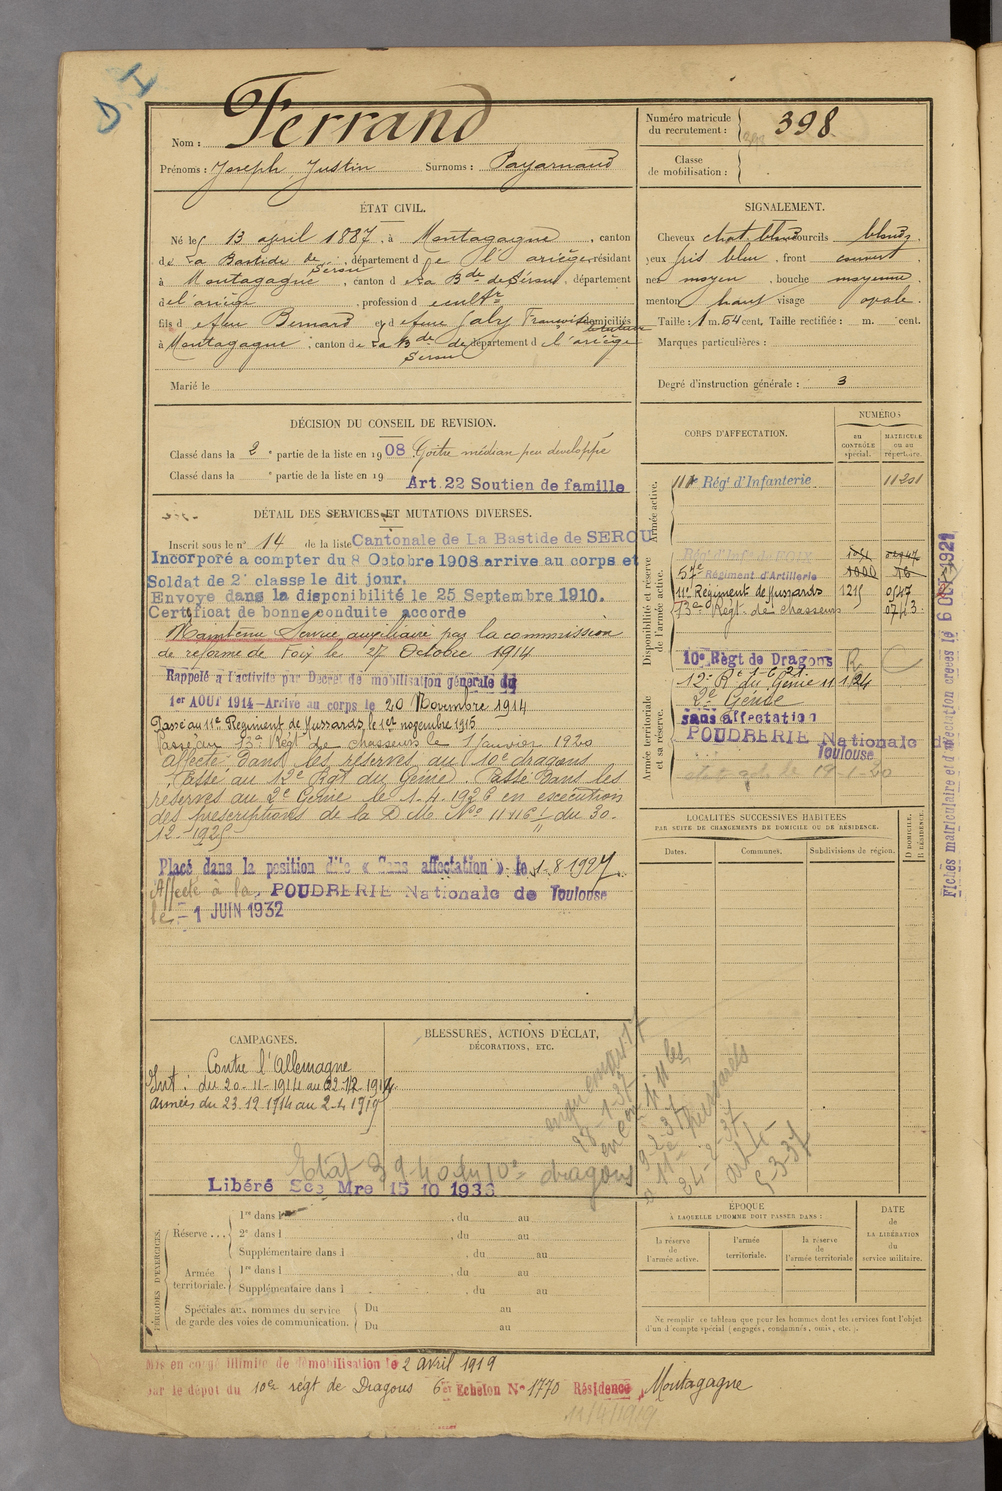 D. I
Nom : Ferrand
Prénoms : Joseph Justin Surnoms : Payarnaud
Numéro matricule du recrutement : 398
Classe de mobilisation :
ÉTAT CIVIL.
Né le 13 april 1887, à Montagagne, canton
de La Bastide de Sérou, département de l'ariège, résidant
à Montagagne, canton de La Bde de Sérou, département
de l'ariège, profession de cultr
fils de feu Bernard et de feue Galy Françoise domiciliés
à Montagagne, canton de La Bde de Serou département de l'ariège
Marié le
SIGNALEMENT.
Cheveux chat. blond sourcils blonds.
yeux gris bleu, front couvert
nez moyen, bouche moyenne
menton haut visage ovale.
Taille : 1 m. 64 cent. Taille rectifiée : m. cent.
Marques particulières :
Degré d'instruction générale : 3
DÉCISION DU CONSEIL DE REVISION.
Classé dans la 2e partie de la liste en 1908 Goitre médian peu développé
Classé dans la e partie de la liste en 19
Art. 22 Soutien de famille
DÉTAIL DES SERVICES ET MUTATIONS DIVERSES.
Inscrit sous le n° 14 de la liste Cantonale de La Bastide de SEROU
Incorporé a compter du 8 Octobre 1908 arrive au corps et
Soldat de 2e classe le dit jour.
Envoye dans la disponibilité le 25 Septembre 1910.
Certificat de bonne conduite accorde
Maintenu Service auxiliaire par la commission
de réforme de Foix le 27 Octobre 1914
Rappelé à l'activite par Decret de mobilisation générale du
1er AOUT 1914 - Arrivé au corps le 20 Novembre 1914
Passé au 11e Regiment de Hussards le 1er novembre 1915
Passé au 13e Régt de chasseurs le 1 Janvier 1920
affecté dans les réserves au 10e dragons
Passé au 12e Rgt du Génie. Passé dans les
réserves au 2e Génie le 1.4.1926 en exécution
des prescriptions de la D.M. No 11416 1/11 du 30-
12-1925
Placé dans la position dite « Sans affectation » le 1-8 1927.
Affecté à la POUDRERIE Nationale de Toulouse
le - 1 JUIN 1932
CORPS D'AFFECTATION.
NUMÉROS
au CONTRÔLE spécial.
MATRICULE ou au répertoire.
Armée active.
Régt d'Infanterie 11201
Disponibilité et réserve de l'armée active.
Régt d'Infie de FOIX
57e Régiment d'Artillerie 1000 16
11e Régiment de Hussards 1215 0547
13e Régt de chasseurs 0743
Armée territoriale et sa réserve.
10e Règt de Dragons
12e Rt du Génie
2e Génie
sans affectation
POUDRERIE Nationale de
Toulouse
Fiches matriculaire et d'affectation créées le 6 OCT 1921
LOCALITÉS SUCCESSIVES HABITÉES
PAR SUITE DE CHANGEMENTS DE DOMICILE OU DE RÉSIDENCE.
Dates. Communes. Subdivisions de région. D. DOMICILE. R. RÉSIDENCE.
CAMPAGNES.
Contre l'Allemagne
Int : du 20-11-1914 au 22-12-1914
armées du 23.12.1914 au 2-4-1919
BLESSURES, ACTIONS D'ÉCLAT,
DÉCORATIONS, ETC.
Etat 39-40 du 10e dragons
Libéré Sce Mre 15 10 1936
PÉRIODES D'EXERCICES.
Réserve...
1re dans l , du au
2e dans l , du au
Supplémentaire dans l , du au
Armée territoriale.
1re dans l , du au
Supplémentaire dans l , du au
Spéciales aux hommes du service de garde des voies de communication.
Du au
Du au
ÉPOQUE
À LAQUELLE L'HOMME DOIT PASSER DANS :
la réserve de l'armée active.
l'armée territoriale.
la réserve de l'armée territoriale
DATE de LA LIBÉRATION du service militaire.
Ne remplir ce tableau que pour les hommes dont les services font l'objet
d'un décompte spécial (engagés, condamnés, omis, etc.).
Mis en congé illimité de démobilisation le 2 avril 1919
par le dépot du 10e régt de Dragons 6e Echelon No 1770 Résidence Montagagne
11/4/1919